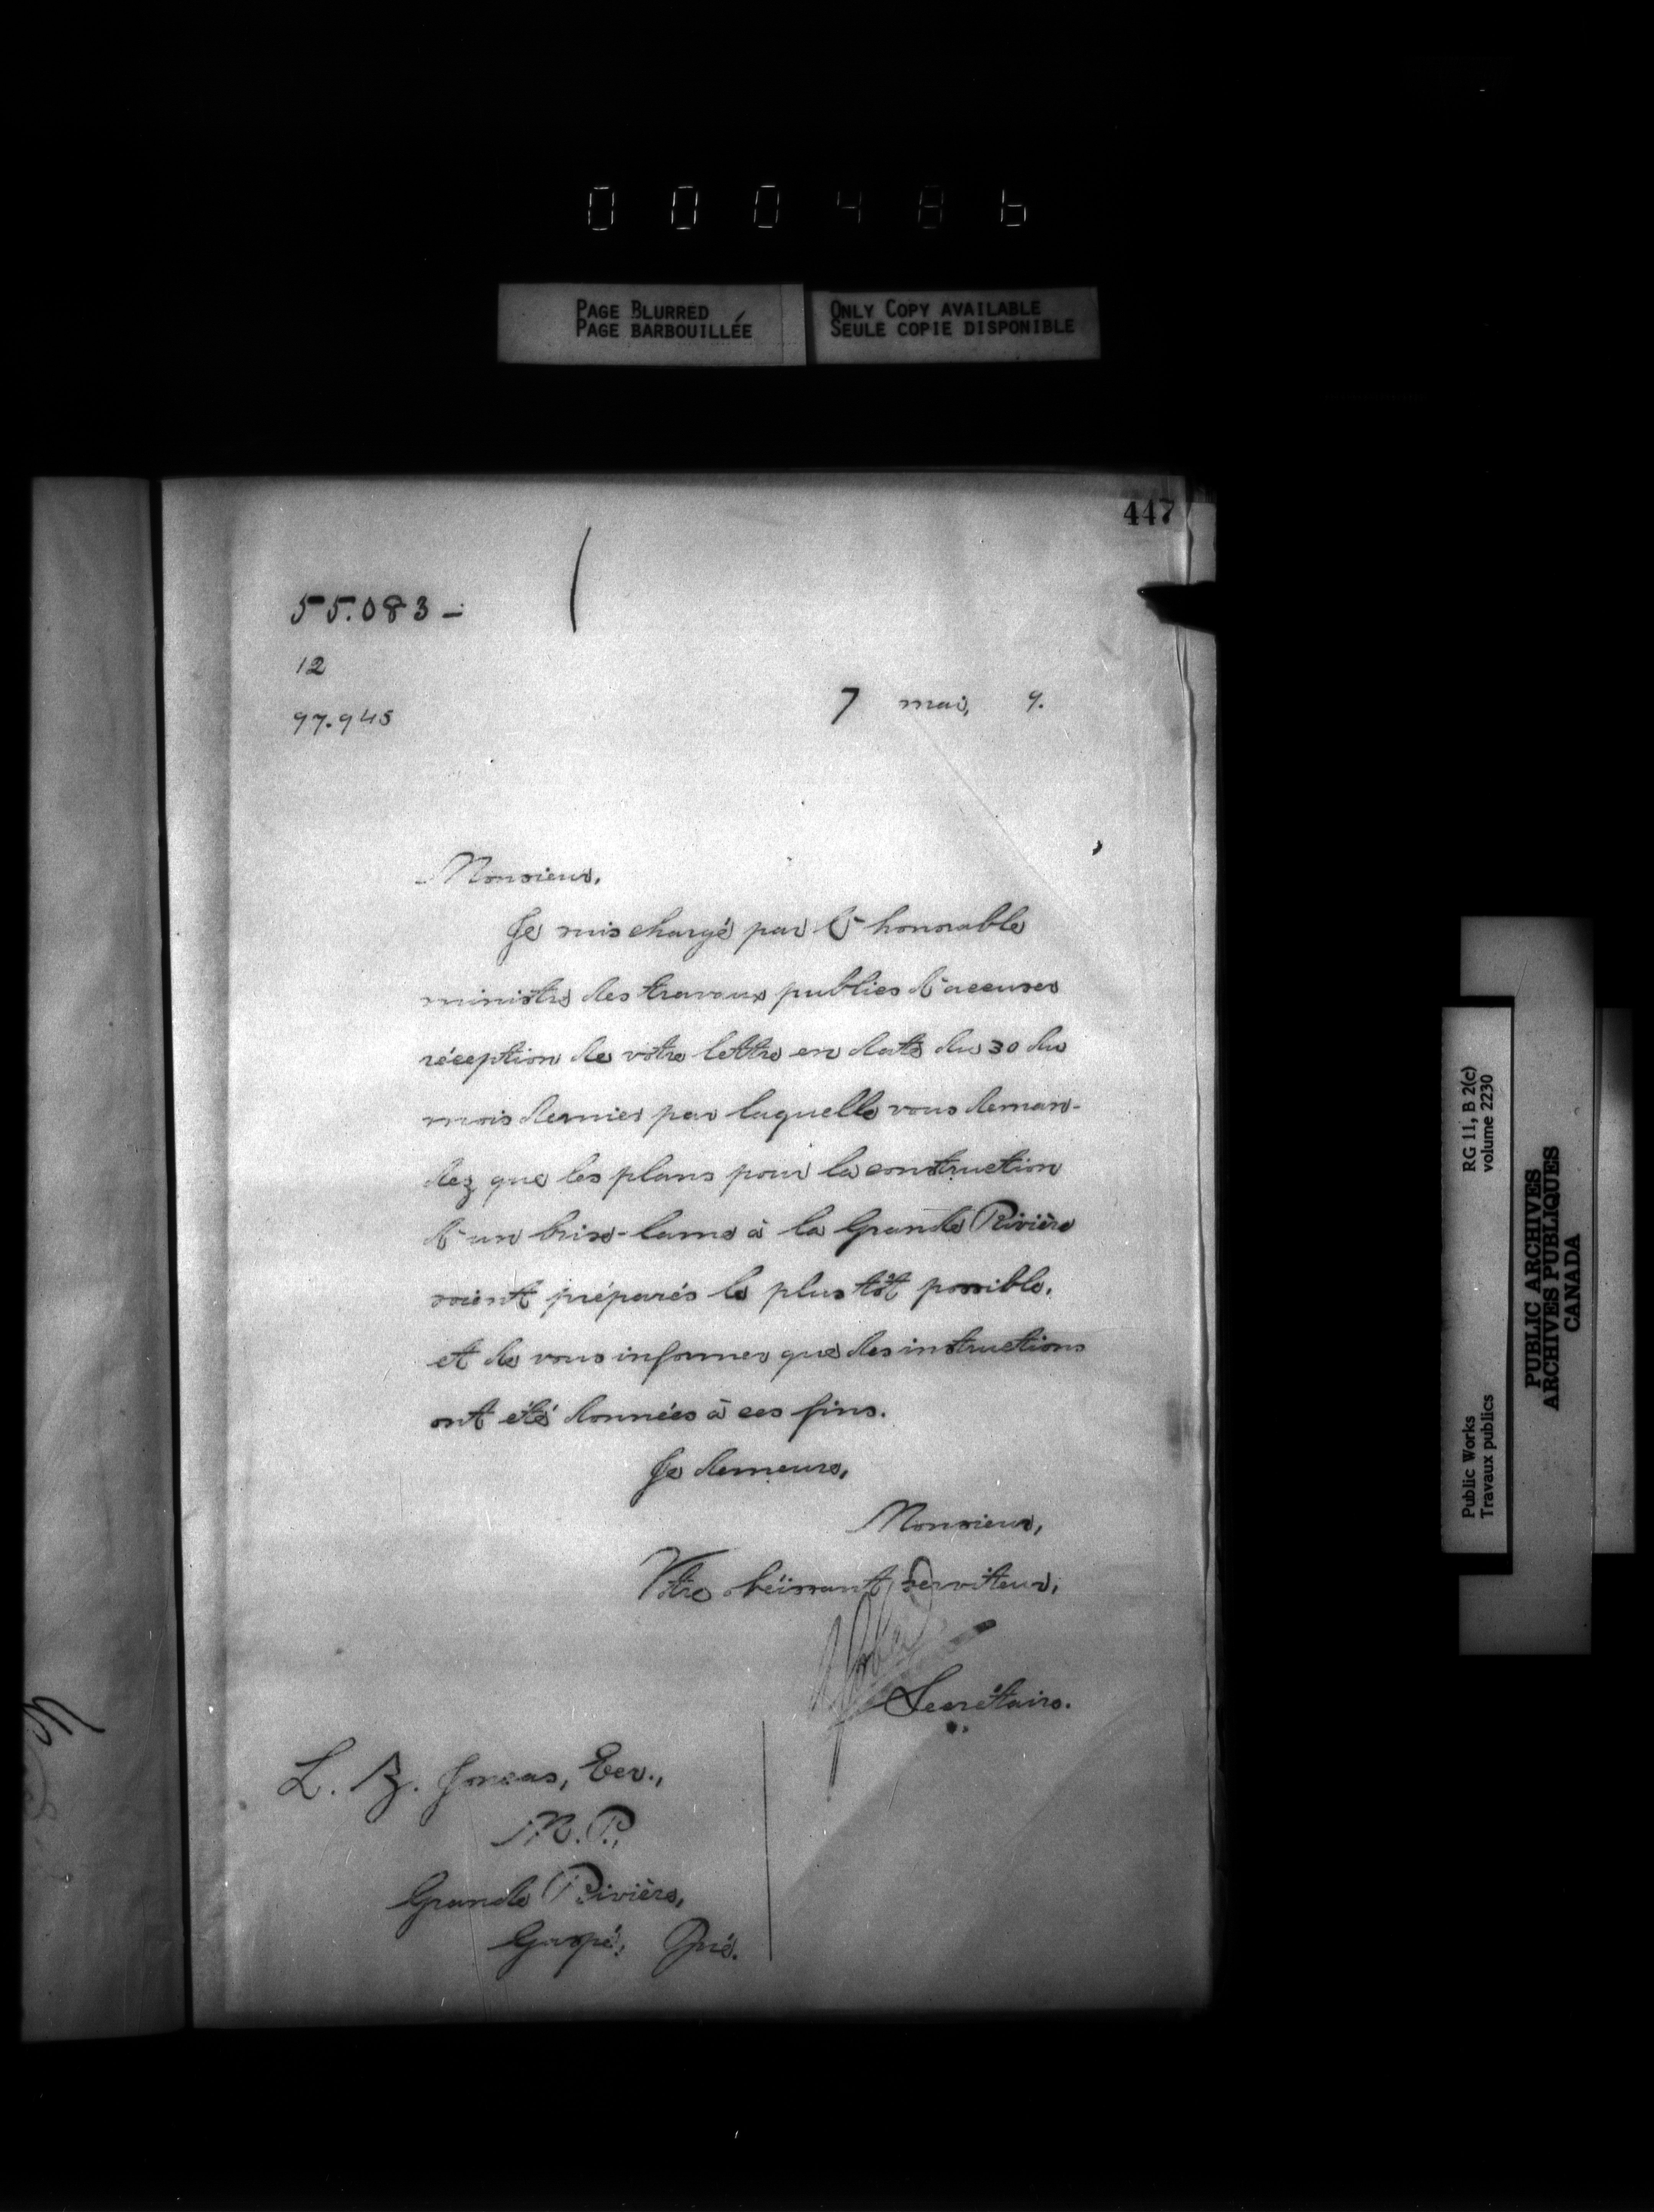 000486
PAGE BLURRED
PAGE BARBOUILLÉE
ONLY COPY AVAILABLE
SEULE COPIE DISPONIBLE
447
55.083-
12
97.945
7 mai, 9.
Monsieur,
Je suis chargé par l'honorable
ministre des travaux publics d'accuser
réception de votre lettre en date du 30 du
mois dernier par laquelle vous deman-
dez que les plans pour la construction
d'un brise-lame à la Grande Rivière
soient préparés le plus tôt possible,
et de vous informer que des instructions
ont été données à ces fins.
Je demeure,
Monsieur,
Votre obéissant serviteur,
Secrétaire.
L. Z. Joncas, Ecr.,
M.P.,
Grande Rivière,
Gaspé, Qué.
Public Works
Travaux publics
RG 11, B 2(c)
volume 2230
PUBLIC ARCHIVES
ARCHIVES PUBLIQUES
CANADA